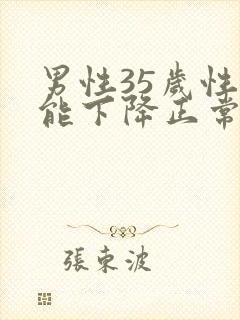 男性35歲性
能下降正常
張東波